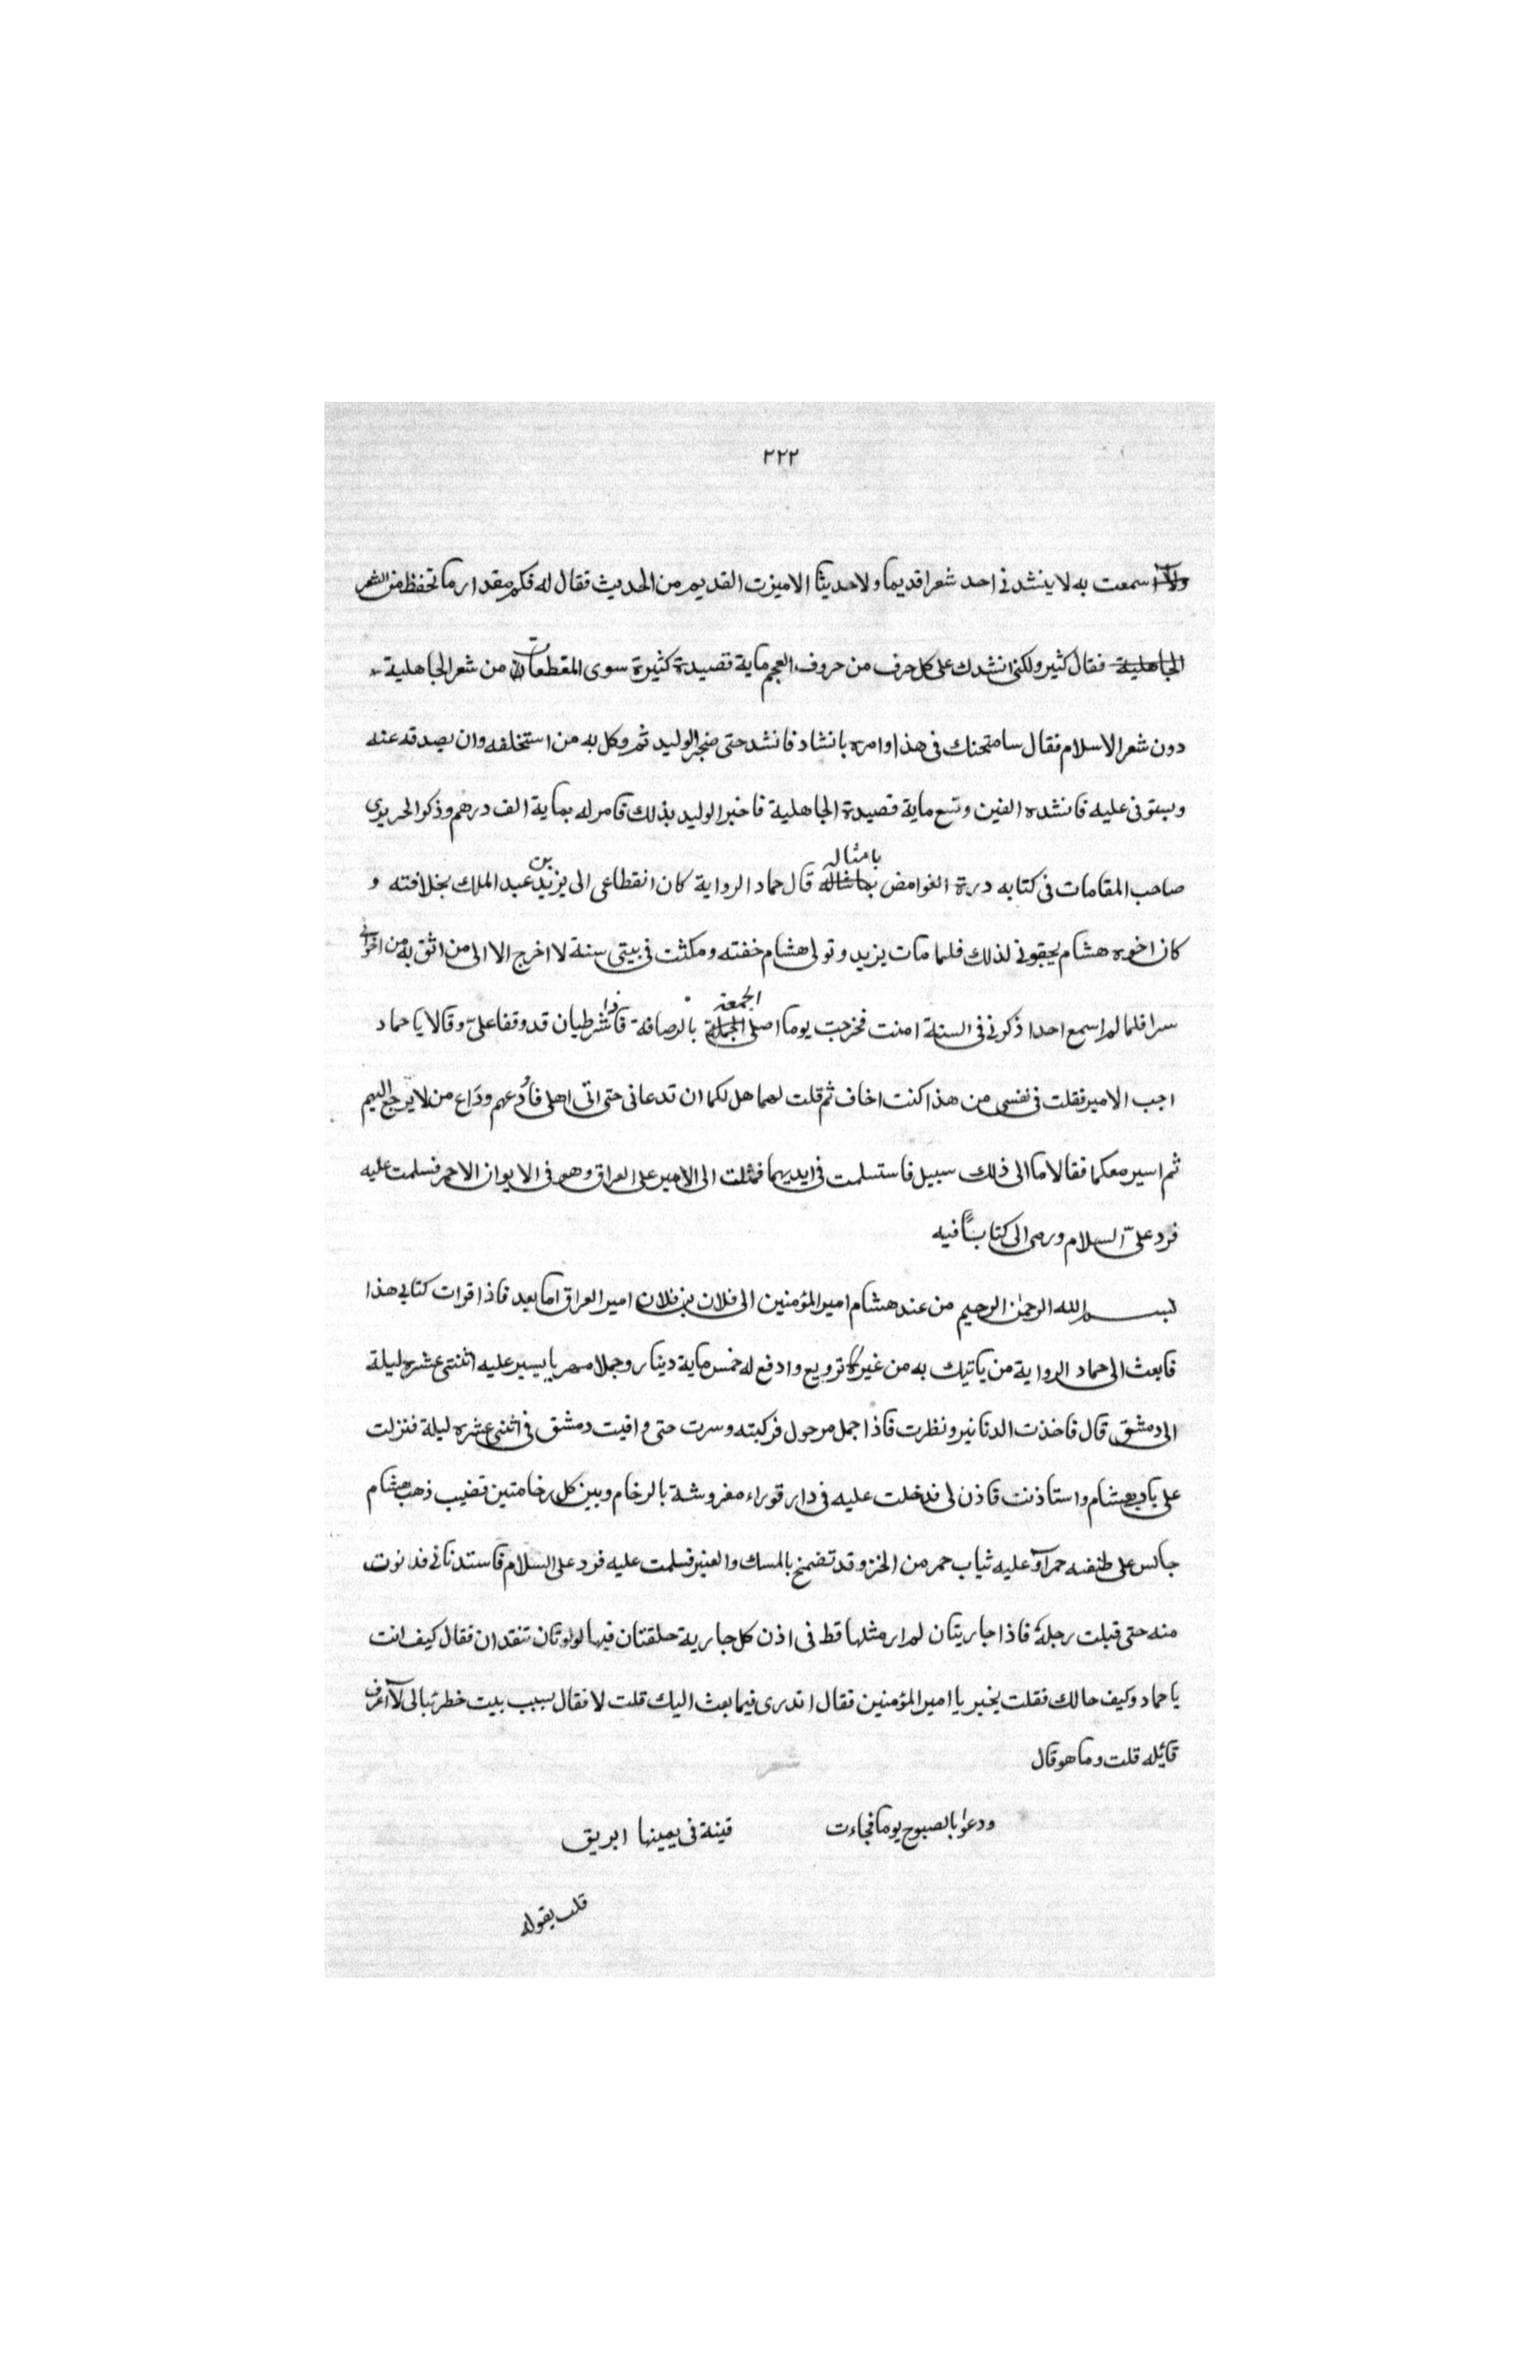 ٢٢٢
ولا سمعت به لا ينشدني احد شعرا قديما ولا حديثا الا ميزت القديم من الحديث فقال له فكم مقدار ما تحفظ من الشعر
الجاهلية فقال كثير ولكني انشدك على كل حرف من حروف العجم ماية قصيدة كثيرة سوى المقطعات من شعر الجاهلية
دون شعر الاسلام فقال سامتحنك في هذا وامره بانشاد فانشد حتى ضجر الوليد ثم وكل به من استخلفه وان يصدقه عنه
ويستوفى عليه فانشده الفين وتسع ماية قصيدة الجاهلية فاخبر الوليد بذلك فامر له بماية الف درهم وذكر الحريرى
صاحب المقامات فى كتابه درة الغوامض بامثاله قال حماد الرواية كان انقطاعى الى يزيد بن عبد الملك بخلافته و
كان اخوه هشام يحقونى لذلك فلما مات يزيد وتولى هشام خفته ومكثت فى بيتى سنة لا اخرج الا الى من اثق به من اخوانى
سرا فلما لم اسمع احدا ذكرنى فى السنة امنت فخرجت يوما اصلى الجمعة بالرصافة فاذا شرطيان قد وقفا علىّ وقالا يا حماد
اجب الامير فقلت فى نفسى من هذا كنت اخاف ثم قلت لهما هل لكما ان تدعانى حتى اتى اهلى فاودعهم وداع من لا يرجع اليهم
ثم اسير معكما فقالا ما الى ذلك سبيل فاستسلمت فى ايديهما فمثلت الى الامير على العراق وهو فى الايوان الاحمر فسلمت عليه
فرد علىّ السلام ورمى الى كتابًا فيه
بسم الله الرحمن الرحيم من عند هشام امير المؤمنين الى فلان بن فلان امير العراق اما بعد فاذا قرات كتابى هذا
فابعث الى حماد الرواية من ياتيك به من غير ترويع وادفع له خمس ماية دينار وجملا مهريا يسير عليه اثنتى عشره ليلة
الى دمشق قال فاخذت الدنانير ونظرت فاذا جمل مرحول فركبته وسرت حتى وافيت دمشق فى اثنى عشره ليلة فنزلت
على باب هشام واستاذنت فاذن لى فدخلت عليه فى دار قوراء مفروشة بالرخام وبين كل رخامتين قضيب ذهب هشام
جالس على طنفسه حمرآ وعليه ثياب حمر من الخز وقد تضمخ بالمسك والعنبر فسلمت عليه فرد على السلام فاستدنانى فدنوت
منه حتى قبلت رجله فاذا جاريتان لم ار مثلها قط فى اذن كل جارية حلقتان فيها لولوتان تتقدان فقال كيف انت
يا حماد وكيف حالك فقلت بخير يا امير المؤمنين فقال اتدرى فيما بعث اليك قلت لا فقال بسبب بيت خطر ببالى لا اعرف
قائله قلت وما هو قال
شعر
ودعوا بالصبوح يوما فجاءت قينة فى يمينها ابريق
قلت يقوله